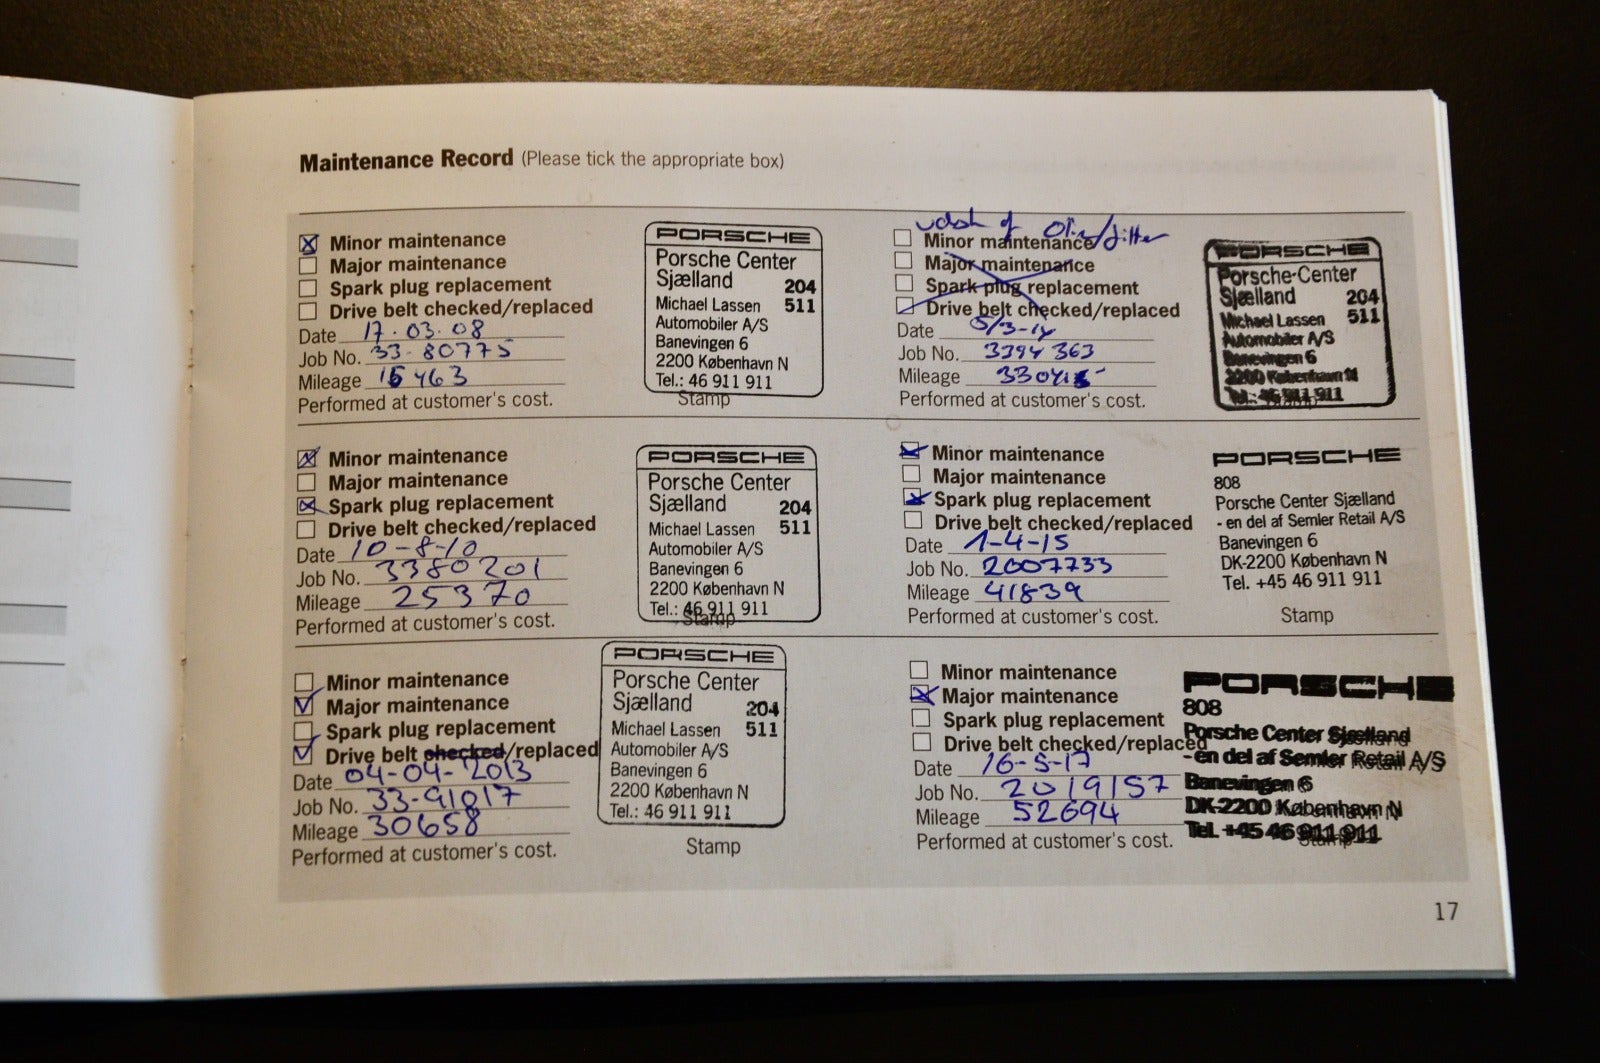 Maintenance Record (Please tick the appropriate box)
Minor maintenance
Major maintenance
Spark plug replacement
Drive belt checked/replaced
Date 17.03.08
Job No. 33-80775
Mileage 15463
Performed at customer's cost.
PORSCHE
Porsche Center
Sjælland 204
Michael Lassen 511
Automobiler A/S
Banevingen 6
2200 København N
Tel.: 46 911 911
Stamp
Minor maintenance
Major maintenance
Spark plug replacement
Drive belt checked/replaced
Date 10-8-10
Job No. 3380201
Mileage 25370
Performed at customer's cost.
PORSCHE
Porsche Center
Sjælland 204
Michael Lassen 511
Automobiler A/S
Banevingen 6
2200 København N
Tel.: 46 911 911
Stamp
Minor maintenance
Major maintenance
Spark plug replacement
Drive belt checked/replaced
Date 04-04-2013
Job No. 33-91017
Mileage 30658
Performed at customer's cost.
PORSCHE
Porsche Center
Sjælland 204
Michael Lassen 511
Automobiler A/S
Banevingen 6
2200 København N
Tel.: 46 911 911
Stamp
af
Minor maintenance
Major maintenance
Spark plug replacement
Drive belt checked/replaced
Date 5/3-14
Job No. 3394363
Mileage
Performed at customer's cost.
PORSCHE
Porsche-Center
Sjælland 204
Michael Lassen 511
Automobiler A/S
Banevingen 6
2200 København N
Tel.: 46 911 911
Stamp
Minor maintenance
Major maintenance
Spark plug replacement
Drive belt checked/replaced
Date 1-4-15
Job No. 2007733
Mileage 41839
Performed at customer's cost.
PORSCHE
808
Porsche Center Sjælland
- en del af Semler Retail A/S
Banevingen 6
DK-2200 København N
Tel. +45 46 911 911
Stamp
Minor maintenance
Major maintenance
Spark plug replacement
Drive belt checked/replaced
Date 16-5-17
Job No. 2019157
Mileage 52694
Performed at customer's cost.
PORSCHE
808
Porsche Center Sjælland
- en del af Semler Retail A/S
Banevingen 6
DK-2200 København N
Tel. +45 46 911 911
Stamp
17